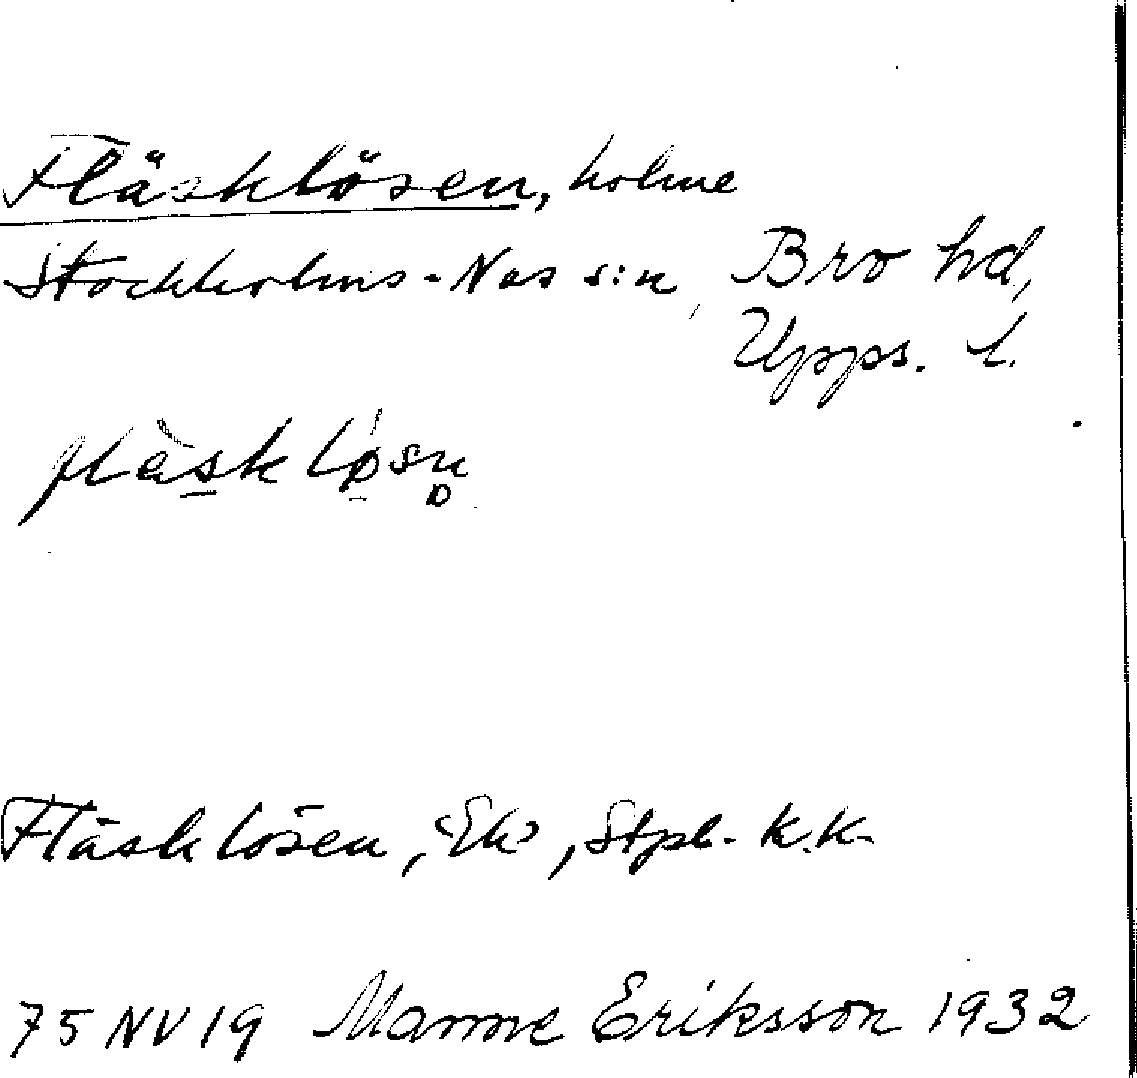 Fläsklösen, holme
Stockholms-Näs s:n, Bro hd,
Upps. l.
flàsklø̀sn̥
Fläsklösen, Ek, Stpl. k.k.
75 NV 19 Manne Eriksson 1932